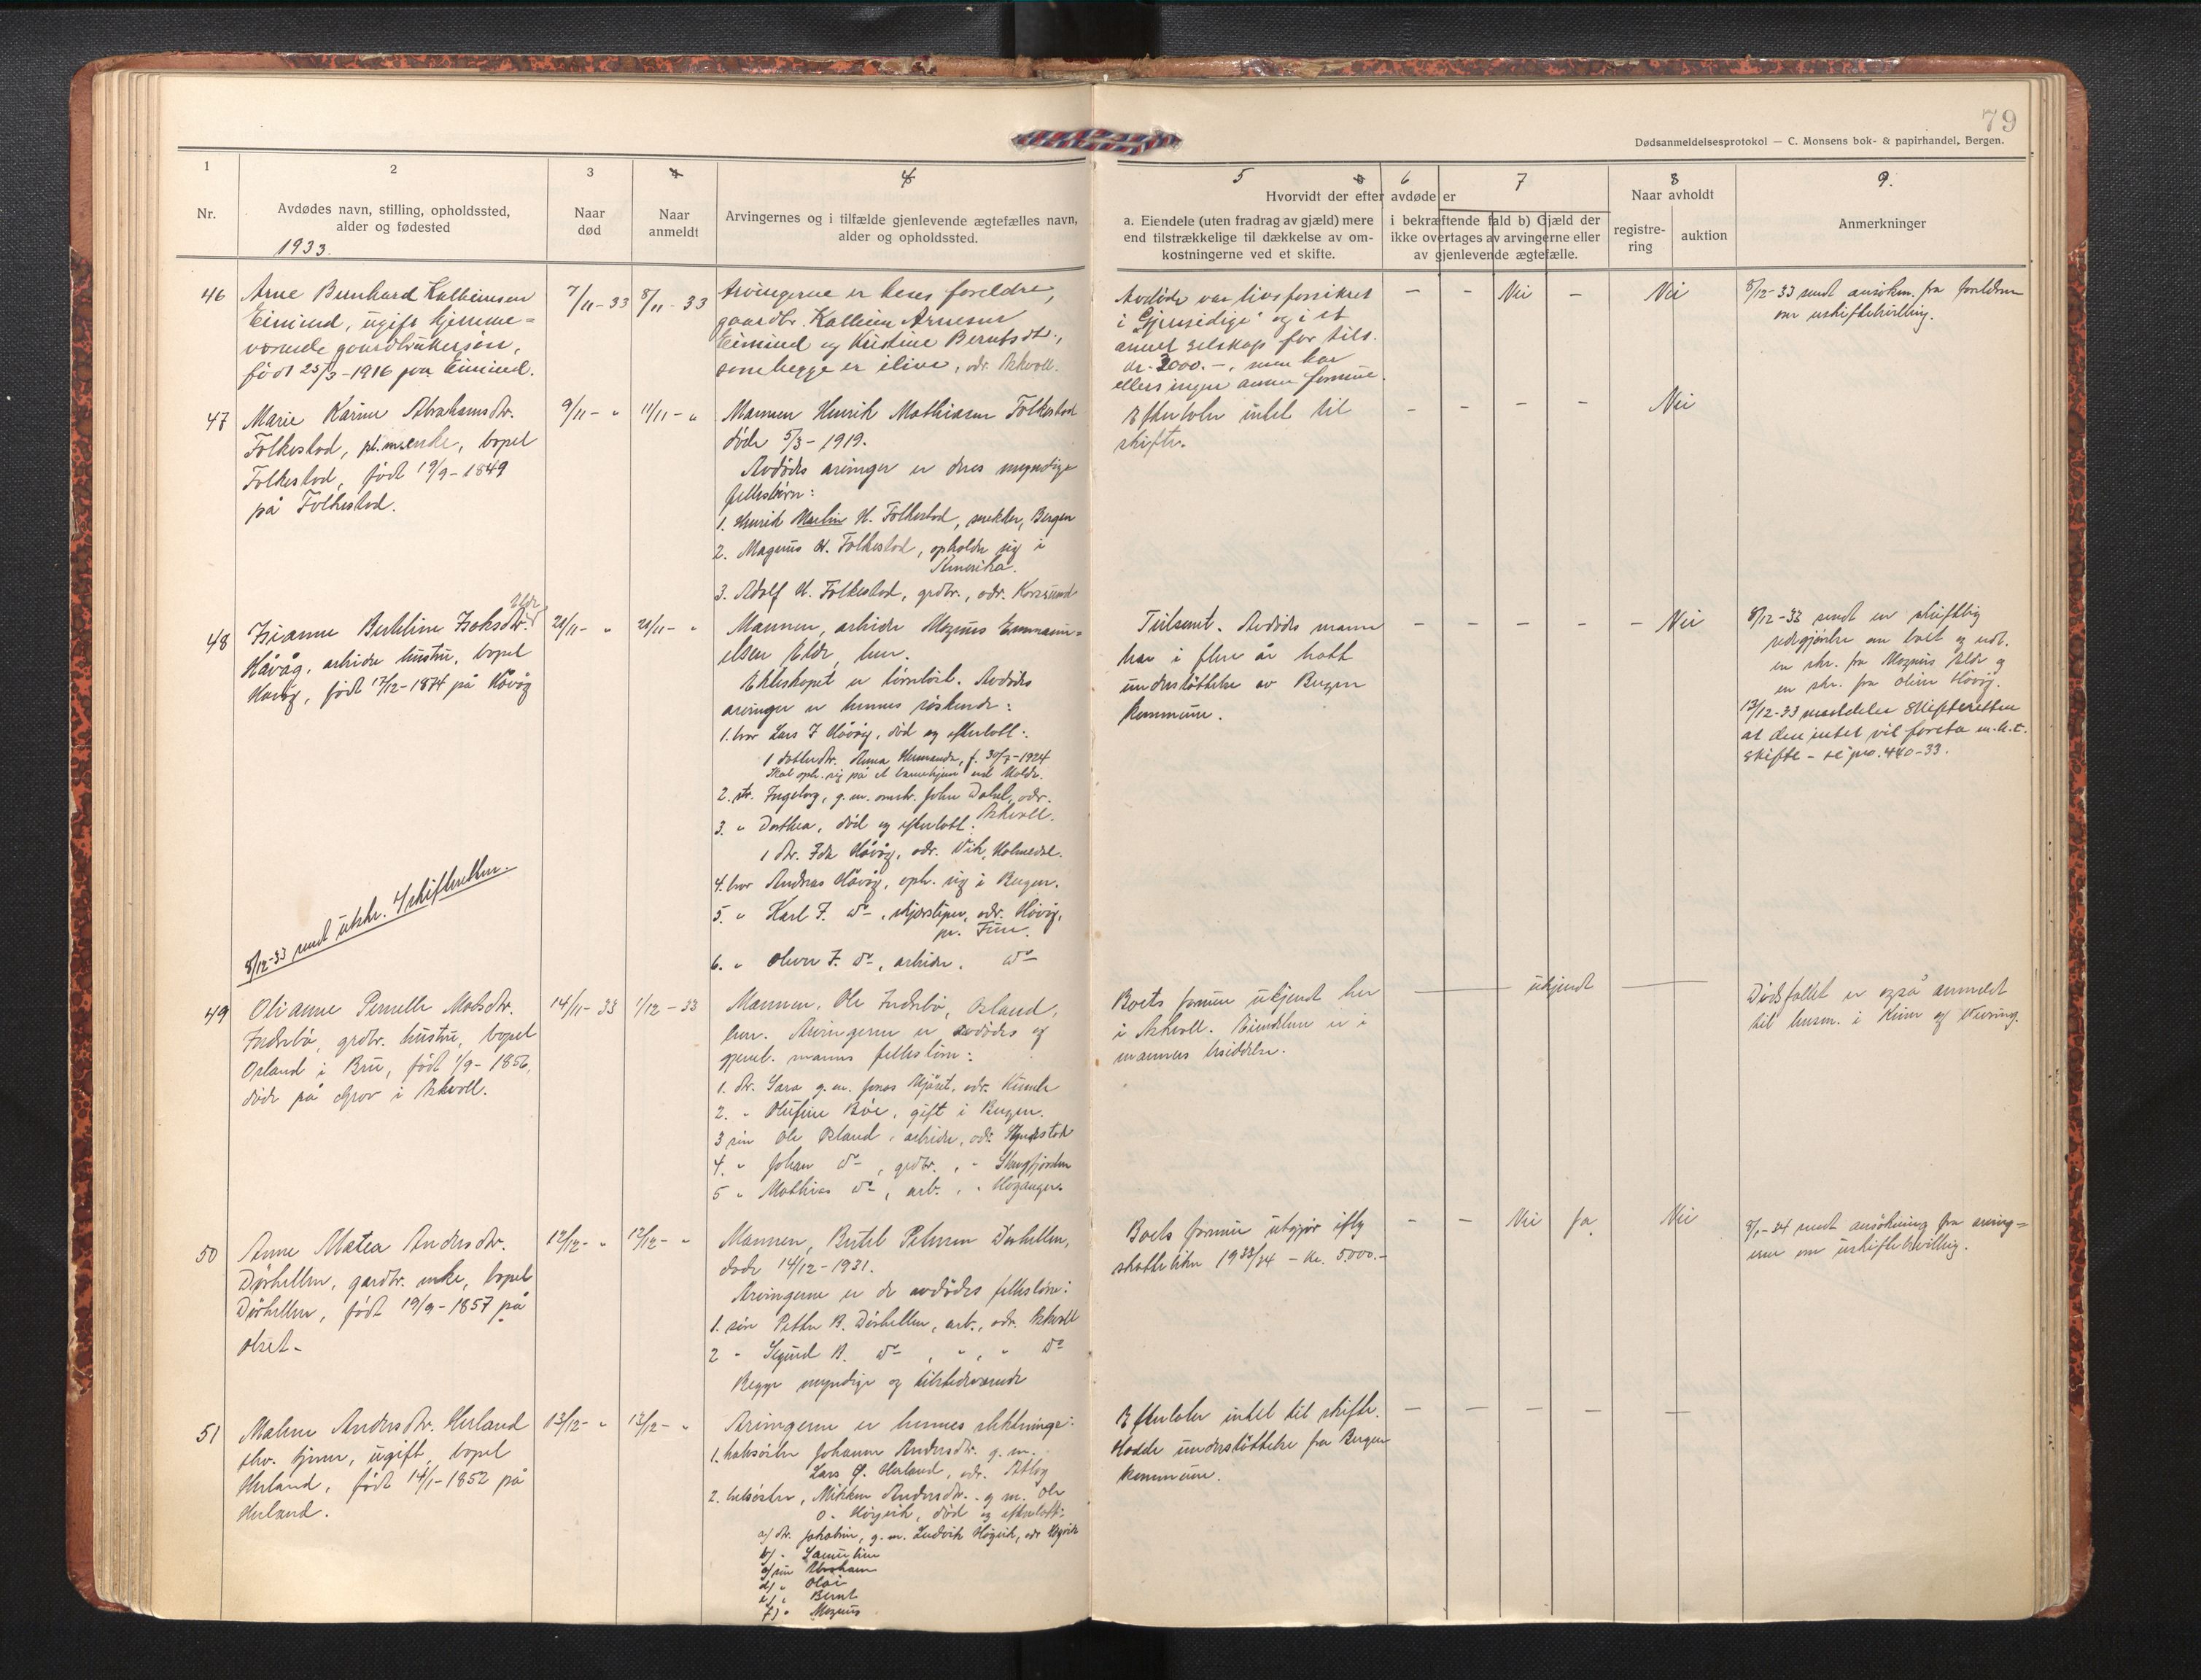 79
Dødsanmeldelsesprotokol — C. Monsens bok- & papirhandel, Bergen.
1
Nr.
2
Avdødes navn, stilling, opholdssted,
alder og fødested
1933.
3
Naar
død
4
Naar
anmeldt
4
Arvingernes og i tilfælde gjenlevende ægtefælles navn,
alder og opholdssted.
5 6 7 8 9.
Hvorvidt der efter avdøde er
a. Eiendele (uten fradrag av gjæld) mere
end tilstrækkelige til dækkelse av om-
kostningerne ved et skifte.
i bekræftende fald b) Gjæld der
ikke overtages av arvingerne eller
av gjenlevende ægtefælle.
Naar avholdt
registre-
ring
auktion
Anmerkninger
46
Arne Bernhard
ugift hjemme=
værende gaardbrukersøn,
født 25/3-1916 paa
7/11-33
8/11-33
Arvingerne er hans foreldre,
gaardbr. Arnesen
og Kristine Berntsdtr.,
som begge er ilive, adr. Askvoll.
Avdøde var livsforsikret
i "Gjensidige" og i et
annet selskap for tils.
kr. 3000.-, men har
ellers ingen annen formue.
- - Nei - Nei
8/12-33 sendt ansøkn. fra foreldrene
om uskiftebevilling.
47
Marie Karine Abrahamsdtr.
Folkestad, enke, bopel
Folkestad, født 19/9-1849
på Folkestad.
9/11- "
11/11- "
Mannen Henrik Mathiasen Folkestad
døde 5/3-1919.
Avdødes arvinger er deres myndige
fellesbørn:
1. Henrik Martin H. Folkestad, snekker, Bergen
2. Magnus H. Folkestad, opholder sig i
Amerika.
3. Adolf H. Folkestad, grdbr., adr. Korssund
Efterlater intet til
skifte.
- - - - Nei
48
Berteline
Håvåg, arbeider hustru, bopel
Håvåg, født 17/12-1874 på Håvåg
8/12-33 sendt utskr. t/skifteretten.
21/11- "
Mannen, arbeider Magnus Emmanu=
elsen her.
Ekteskapet er barnløst. Avdødes
arvinger er hennes søskende:
1. bror Lars J Håvåg, død og efterlatt:
1 datter Anna
Skal oph. sig på et barnehjem ved Molde.
2. str. Ingeborg, g.m. John adr.
Askvoll.
3. " Dorthea, død og efterlatt:
1 dtr. Ida Håvåg, adr. Vik, Holmedal.
4. bror Andreas Håvåg, oph. sig i Bergen.
5. " Karl J. do, adr. Håvåg,
pr. Fure.
6. " Oliver J. do, arbeider. do
Avdødes mann
har i flere år hatt
understøttelse av Bergen
kommune.
- - - - - Nei
8/12-33 sendt en skriftlig
redegjørelse om boet og
en skr. fra Magnus og
en skr. fra Oliver Håvåg.
13/12-33 meddeler Skifteretten
at den intet vil foreta m.h.t.
skifte - se jno. 440-33.
49
Olianne Pernelle Matsdtr.
Indrebø, grdbr. hustru, bopel
Osland i Bru, født 1/9-1856,
døde på Grov i Askvoll.
14/11-33
1/12-33
Mannen, Ole Indrebø, Osland,
her. Arvingerne er avdødes og
gjenl. manns fellesbørn:
1. dtr. Sara g.m. Jonas adr.
2. " Olufine Bøe, gift i Bergen.
3 søn Ole Osland, arbeider, adr.
4. " Johan do, grdbr., "
5 " Mathias do, arb., " Høyanger
Boets formue ukjendt her
i Askvoll. Eiendelene er i
mannens besiddelse.
ukjendt
Dødsfallet er også anmeldt
til lensm. i Kinn og Vevring.
50
Anne Matea Andersdtr.
Dørhellen, gardbr. enke, bopel
Dørhellen, født 19/9-1857 på
Olset-
12/12- "
12/12- "
Mannen, Bertel Petersen Dørhellen,
døde 14/12-1931.
Arvingerne er de avdødes fellesbørn:
1. søn Petter B. Dørhellen, arb., adr. Askvoll
2 " Sigurd B. do, ", " do
Begge myndige og tilstedeværende
Boets formue utgjør iflg
skattelikn 1933/34 - kr. 5000.-
- - Nei Ja Nei
8/1-34 sendt ansøkning fra arving=
erne om uskiftebevilling.
51
Malene Andersdtr. Herland
fhv. tjener, ugift, bopel
Herland, født 14/1-1852 på
Herland.
13/12- "
13/12- "
Arvingerne er hennes slektninger:
1. halvsøster Johanne Andersdtr. g.m.
Lars Herland, adr.
2. helsøster, Andersdtr. g m. Ole
O. død og efterlatt:
a/ dtr. Jakobine, g.m. Ludvik
b/ "
c/ søn Abraham
d/ " Olai
e/ " Bernt
f) " Magnus
Efterlater intet til skifte.
Hadde understøttelse fra Bergen
kommune.
- - - - -